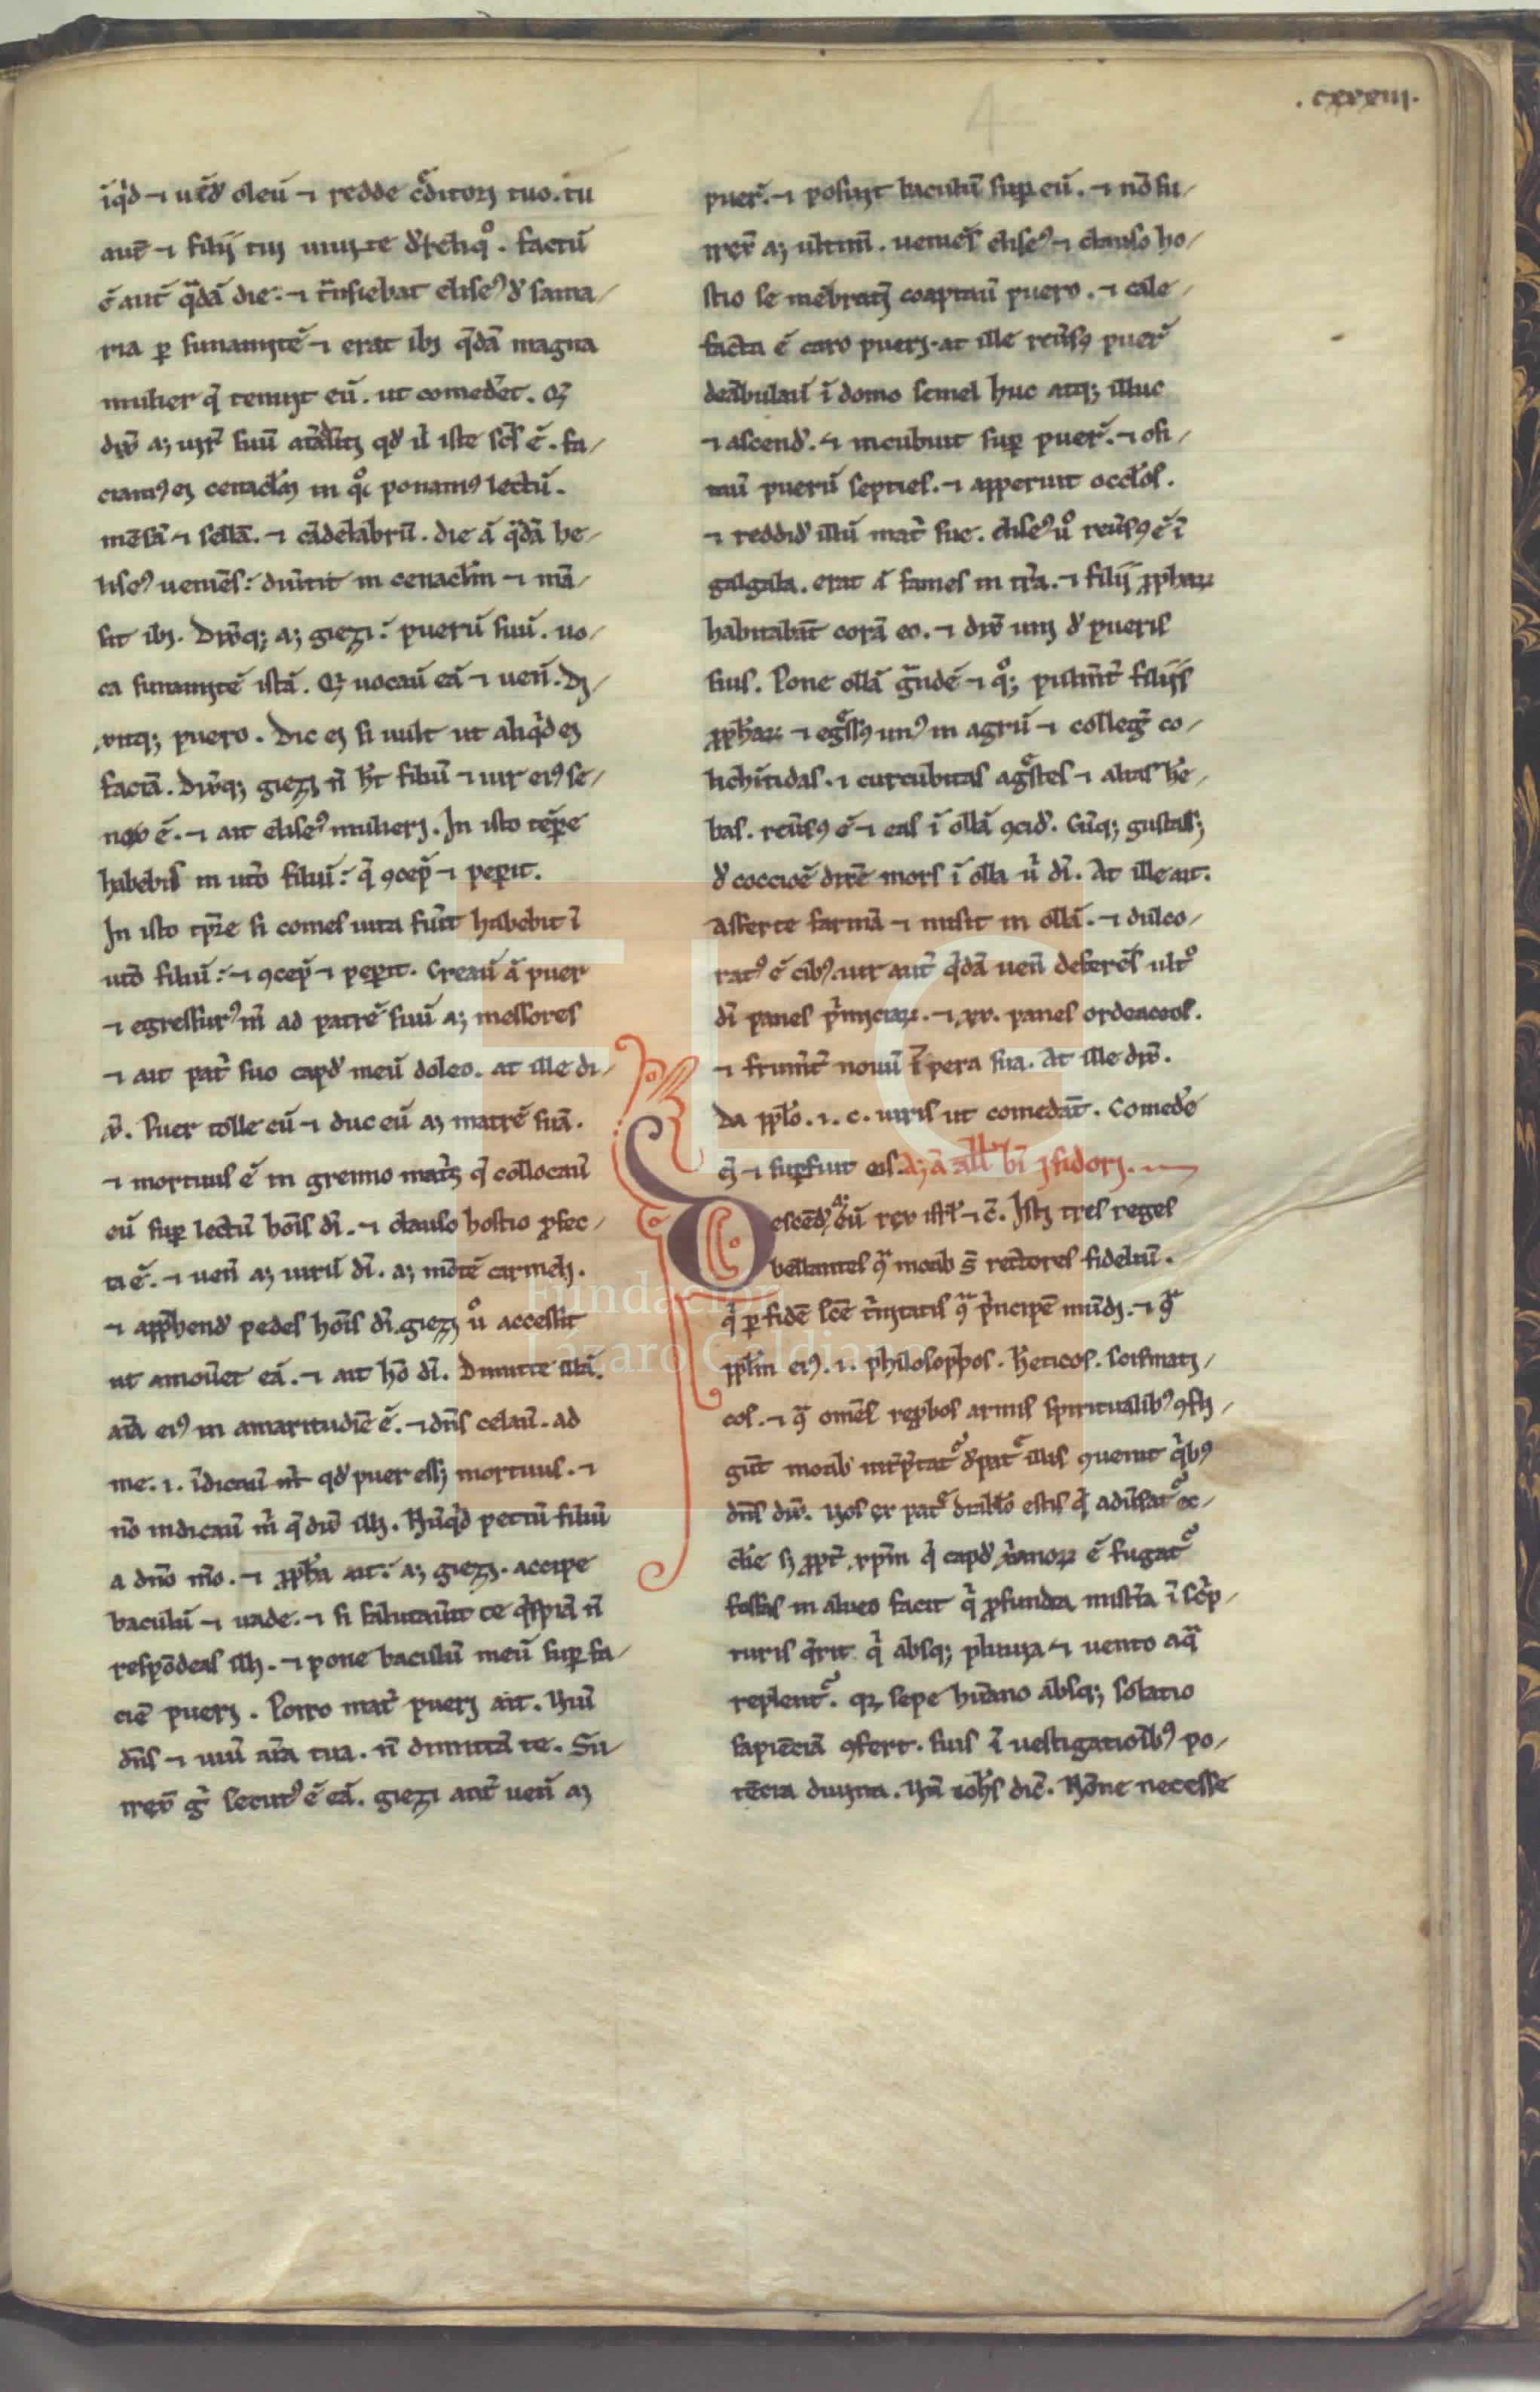 .cxxxiii.
iq̇d ⁊ uēd oleū ⁊ redde c̄ditori tuo. tu
aut̄ ⁊ filij tui uiuite d̄ reliq̊. factū
ē aut̄ q̄dā die. ⁊ t̄nsiebat eliseꝰ d̄ sama/
ria p sunamitē ⁊ erat ibi q̄dā magna
mulier q̄ tenuit eū. ut comed̄et.
dix̄ aꝫ uir̄ suū qd̄ iste sc̄s ē. fa/
ciamꝰ ei cenacl̄m in q̊ ponamꝰ lectū.
mēsā ⁊ sellā. ⁊ cādelabrū. die ā q̄dā he/
liseꝰ ueniēs: diūtit in cenacl̄m ⁊ mā/
sit ibi. Dix̄qꝫ aꝫ giezi: puerū suū. uo/
ca sunamitē istā. uocaū eā ⁊ uen̄. di/
xitqꝫ puero. Dic ei si uult ut aliq̇d ei
faciā. Dix̄qꝫ giezi n̄ h̄t filiū ⁊ uir eiꝰ se/
nex ē. ⁊ ait eliseꝰ mulieri. In isto tēp̄e
habebis in ut̄o filiū: q̄ ꝯcep̄ ⁊ pep̄it.
In isto tp̄r̄e si comes uita fūit habebit ī
ut̄o filiū: ⁊ ꝯcep̄ ⁊ pep̄it. Creaū ā puer
⁊ egressurꝰ m̄ ad patrē suū aꝫ messores
⁊ ait pat̄ suo capd̄ meū doleo. at ille di/
x̄. Puer tolle eū ⁊ duc eū aꝫ matrē suā.
⁊ mortuus ē in gremio mat̄s q̄ collocaū
eū sup lectū hoīs dī. ⁊ clauso hostio p̄fec/
ta ē. ⁊ uen̄ aꝫ uirū dī. aꝫ mōtē carmeli.
⁊ app̄hend̄ pedes hoīs dī. giezi ů accessit
ut amoūet eā. ⁊ ait hō dī. Dimitte illā.
aīa eiꝰ in amaritudīe ē. ⁊ dn̄s celaū. ad
me. i. īdicaū m̄ qd̄ puer essꝫ mortuus. ⁊
nō indicaū m̄ q̄ dix̄ illi. Nūq̇d petiū filiū
a dn̄o m̄o. ⁊ p̄ph̄a ait: aꝫ giezi. accipe
baculū ⁊ uade. ⁊ si salutaūit te q̇spiā n̄
respōdeas illi. ⁊ pone baculū meū sup fa/
ciē pueri. Porro mat̄ pueri ait. Uiuī
dn̄s ⁊ uiuī aīa tua. n̄ dimittā te. Su/
rrex̄ ḡ secutꝰ ē eā. giezi aut̄ uen̄ aꝫ
puer̄. ⁊ posuit baculū sup eū. ⁊ nō su/
rrex̄ aꝫ ultimū. ueniēs eliseꝰ ⁊ clauso ho/
stio se mēbratī coaptaū puero. ⁊ cale/
facta ē caro pueri. at ille reūsꝰ puer̄
deābulaū ī domo semel huc atqꝫ illuc
⁊ ascend̄. ⁊ incubuit sup puer̄. ⁊ osci/
taū puerū septies. ⁊ apperuit occl̄os.
⁊ reddid̄ illū mat̄ sue. eliseꝰ ů reūsꝰ ē ī
galgala. erat ā fames in t̄ra. ⁊ filij p̄phaꝝ
habitabāt corā eo. ⁊ dix̄ uni d̄ pueris
suis. Pone ollā ḡndē ⁊ q̊qꝫ pulm̄t̄ filijs
p̄ph̄aꝝ ⁊ eg̃ssꝰ unꝰ in agrū ⁊ colleg̃ co/
lichītidas. ⁊ curcubitas ag̃stes ⁊ alias h̄e/
bas. reūsꝰ ē ⁊ eas ī ollā ꝯcid̄. Cūqꝫ gustassꝫ
d̄ coccioē dix̄e mors ī olla ů dī. At ille ait.
Afferte farinā ⁊ misit in ollā. ⁊ dulco/
ratꝰ ē cibꝰ. uir aut̄ q̇dā uen̄ deferēs ult̊
dī panes p̄miciaꝝ. ⁊ .xv. panes ordeaceos.
⁊ frum̄t̄ nouū ī pera sua. At ille dix̄.
Da ppl̄o. i. c. uiris ut comedāt. Comed̄e
⁊ supfuit eis. Aꝫ ā all̄ bī ysidori.
Descēd̄ eū rex isr̄l ⁊ c̄. Isti tres reges
bellantes q̄ moab s̄ rectores fideliū.
q̇ p fidē sc̄e t̄nitatis q̄ p̄ncipē mūdi. ⁊ q̄
ppl̄m eiꝰ. i. philosophos. h̄eticos. scismati/
cos. ⁊ q̄ om̄es rep̄bos armis spiritualibꝰ ꝯfli/
gūt moab int̄p̄tat̄ d̄ pat̄ illis ꝯuenit q̇bꝰ
dn̄s dix̄. Uos ex pat̄ diabl̄o estis q̇ adūsat̄ ec/
cl̄ie sꝫ p̄pt̄ xp̄m q̇ capd̄ x̄anoꝝ ē fugat̄
fossas in alueo facit q̇ p̄funda mist̄ia ī sc̄p/
turis q̄rit q̇ absqꝫ pluuia ⁊ uento aq̄
replent̄. sepe hūano absqꝫ solatio
sapiēciā ꝯfert. suis ī uestigatiōibꝰ po/
tēcia diuina. Uñ ioh̄s dic̄. Nōne necesse
Fundación
Lázaro Galdiano